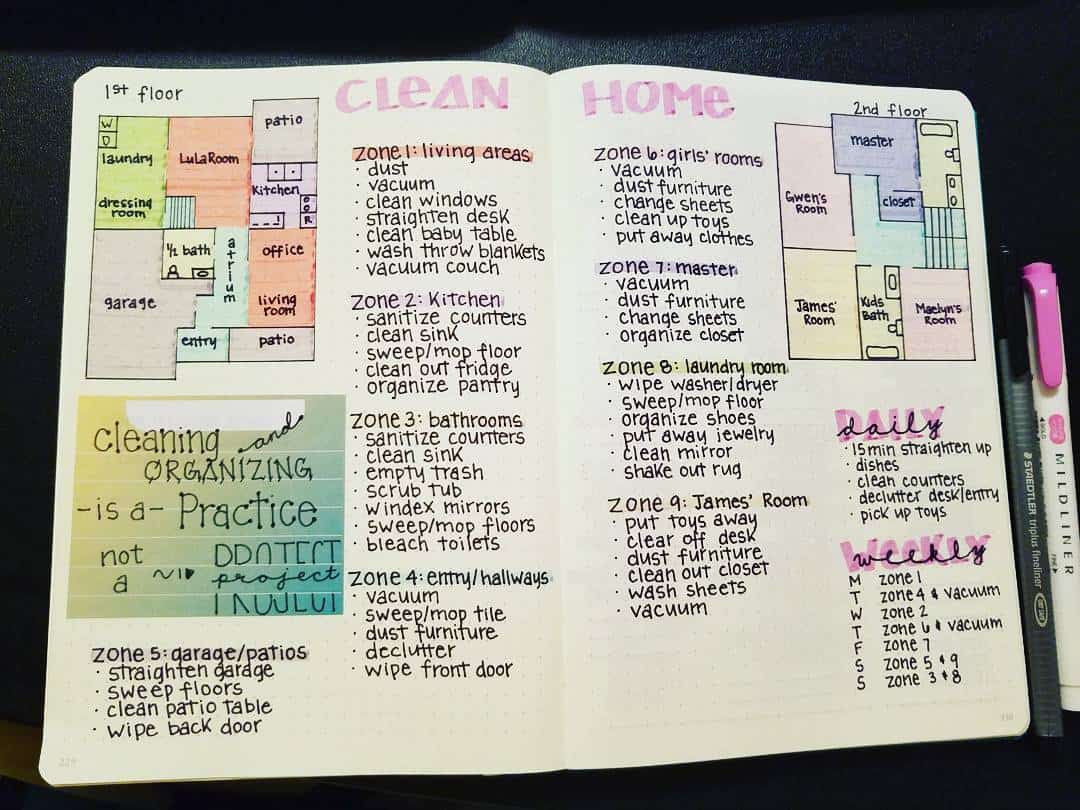 1st floor
CLEAN
W
D
laundry
LuLaRoom
patio
Kitchen
R
dressing
room
1/2 bath
atrium
office
garage
living
room
entry
patio
cleaning and
ORGANIZING
-is a- Practice
not
a
PROJECT
project
PROJECT
zone 5: garage/patios
· straighten garage
· sweep floors
· clean patio table
· wipe back door
zone 1: living areas
· dust
· vacuum
· clean windows
· straighten desk
· clean baby table
· wash throw blankets
· vacuum couch
zone 2: Kitchen
· sanitize counters
· clean sink
· sweep/mop floor
· clean out fridge
· organize pantry
zone 3: bathrooms
· sanitize counters
· clean sink
· empty trash
· scrub tub
· windex mirrors
· sweep/mop floors
· bleach toilets
zone 4: entry/hallways
· vacuum
· sweep/mop tile
· dust furniture
· declutter
· wipe front door
HOME
zone 6: girls' rooms
· vacuum
· dust furniture
· change sheets
· clean up toys
· put away clothes
zone 7: master
· vacuum
· dust furniture
· change sheets
· organize closet
zone 8: laundry room
· wipe washer/dryer
· sweep/mop floor
· organize shoes
· put away jewelry
· clean mirror
· shake out rug
zone 9: James' Room
· put toys away
· clear off desk
· dust furniture
· clean out closet
· wash sheets
· vacuum
2nd floor
master
Gwen's
Room
closet
James'
Room
Kids
Bath
Maelyn's
Room
DAILY
daily
· 15 min straighten up
· dishes
· clean counters
· declutter desk/entry
· pick up toys
WEEKLY
weekly
M zone 1
T zone 4 & vacuum
W zone 2
T zone 6 & vacuum
F zone 7
S zone 5 & 9
S zone 3 & 8
STAEDTLER triplus fineliner
MILDLINER